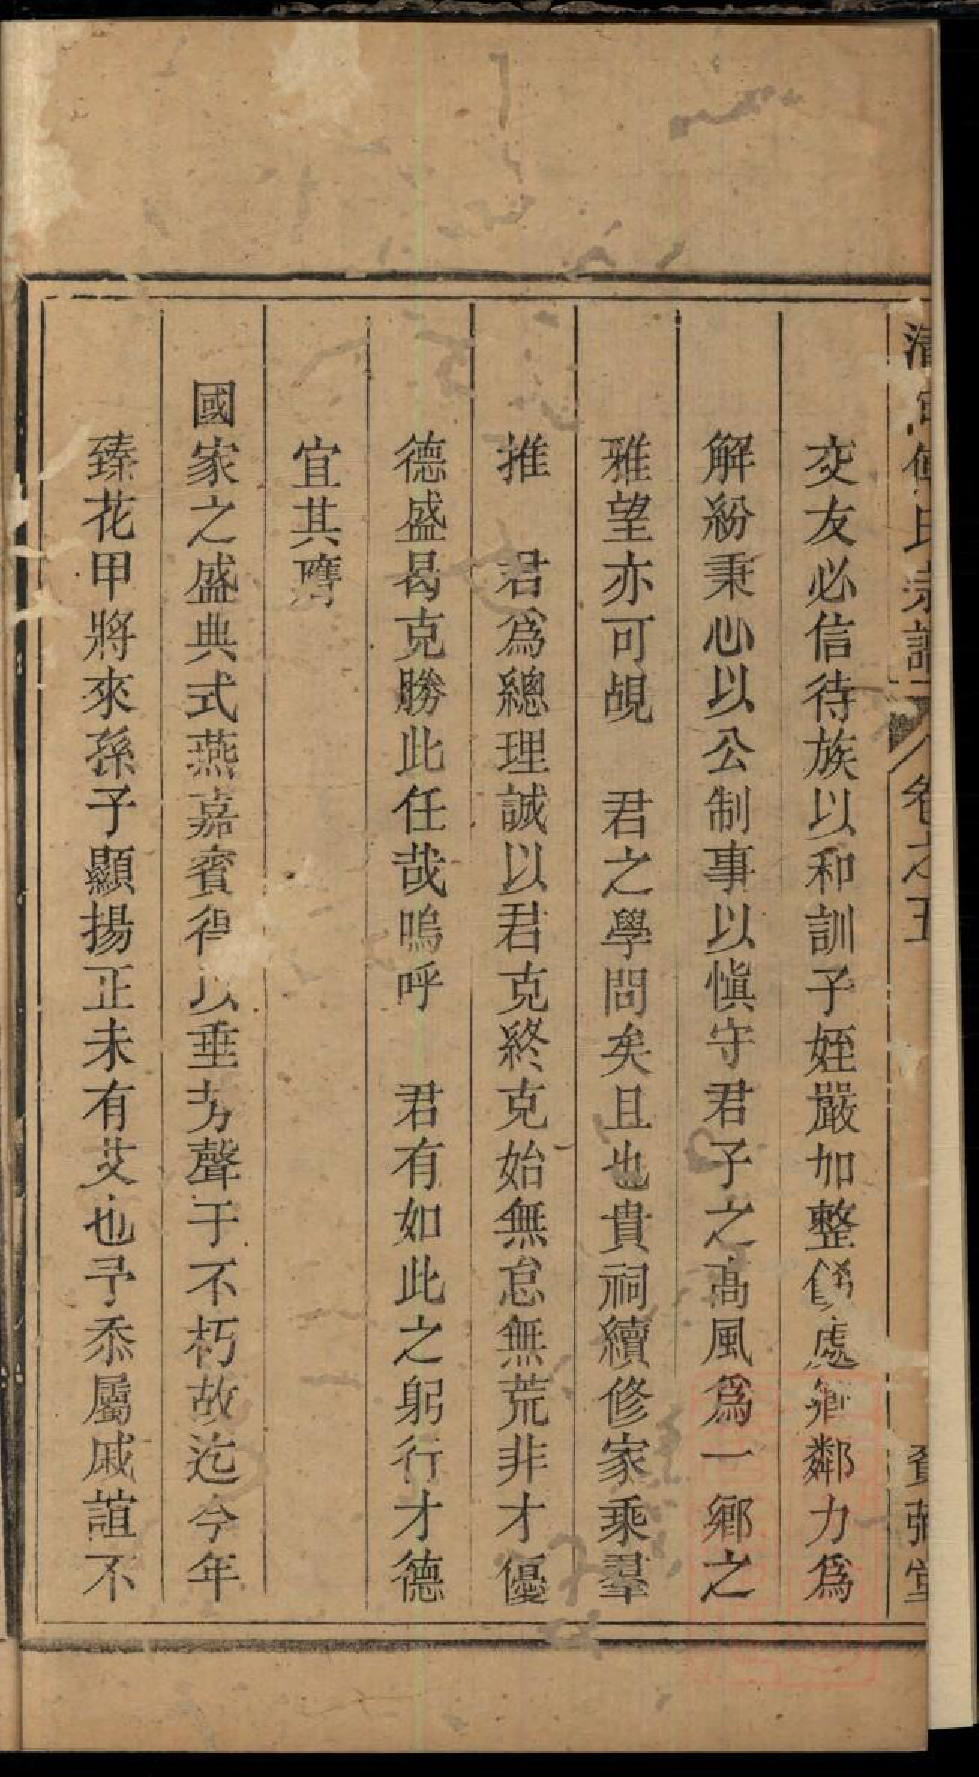 交友必信待族以和訓子姪嚴加整飭處鄉鄰力爲
解紛秉心以公制事以愼守君子之高風爲一鄉之
雅望亦可覘　君之學問矣且也貴祠續修家乘羣
推　君爲總理誠以君克終克始無怠無荒非才優
德盛曷克勝此任哉嗚呼　君有如此之躬行才德
宜其膺
國家之盛典式燕嘉賓得以垂芳聲于不朽故迄今年
臻花甲將來孫子顯揚正未有艾也予忝屬戚誼不
氏宗譜　卷之五